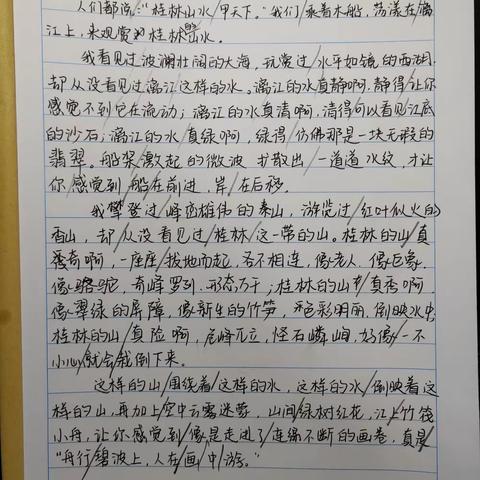 人们都说："桂林山水甲天下。"我们乘着木船，荡漾在漓
江上，来观赏桂林的山水。
我看见过波澜壮阔的大海，玩赏过水平如镜的西湖，
却从没看见过漓江这样的水。漓江的水真静啊，静得让你
感觉不到它在流动；漓江的水真清啊，清得可以看见江底
的沙石；漓江的水真绿啊，绿得仿佛那是一块无瑕的
翡翠。船桨激起的微波扩散出一道道水纹，才让
你感觉到船在前进，岸在后移。
我攀登过峰峦雄伟的泰山，游览过红叶似火的
香山，却从没看见过桂林这一带的山。桂林的山真
奇啊，一座座拔地而起，各不相连，像老人，像巨象，
像骆驼，奇峰罗列，形态万千；桂林的山真秀啊，
像翠绿的屏障，像新生的竹笋，色彩明丽，倒映水中；
桂林的山真险啊，危峰兀立，怪石嶙峋，好像一不
小心就会栽倒下来。
这样的山围绕着这样的水，这样的水倒映着这
样的山，再加上空中云雾迷蒙，山间绿树红花，江上竹筏
小舟，让你感觉到像是走进了连绵不断的画卷，真是
"舟行碧波上，人在画中游。"